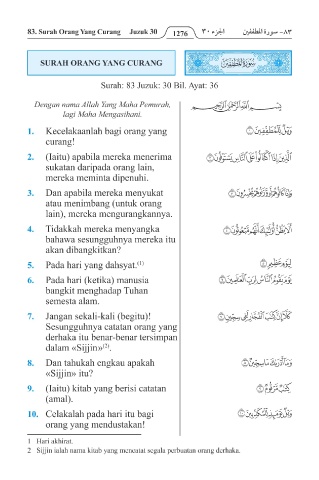 83. Surah Orang Yang Curang Juzuk 30 1276 الجزء ٣٠ ٨٣- سورة المطففين
SURAH ORANG YANG CURANG سُورَةُ المُطَفِّفِينَ
Surah: 83 Juzuk: 30 Bil. Ayat: 36
Dengan nama Allah Yang Maha Pemurah, بِسْمِ ٱللَّهِ ٱلرَّحْمَٰنِ ٱلرَّحِيمِ
lagi Maha Mengasihani.
1. Kecelakaanlah bagi orang yang وَيْلٌ لِّلْمُطَفِّفِينَ ١
curang!
2. (Iaitu) apabila mereka menerima ٱلَّذِينَ إِذَا ٱكْتَالُوا۟ عَلَى ٱلنَّاسِ يَسْتَوْفُونَ ٢
sukatan daripada orang lain,
mereka meminta dipenuhi.
3. Dan apabila mereka menyukat وَإِذَا كَالُوهُمْ أَو وَّزَنُوهُمْ يُخْسِرُونَ ٣
atau menimbang (untuk orang
lain), mereka mengurangkannya.
4. Tidakkah mereka menyangka أَلَا يَظُنُّ أُو۟لَٰٓئِكَ أَنَّهُم مَّبْعُوثُونَ ٤
bahawa sesungguhnya mereka itu
akan dibangkitkan?
5. Pada hari yang dahsyat.(1) لِيَوْمٍ عَظِيمٍ ٥
6. Pada hari (ketika) manusia يَوْمَ يَقُومُ ٱلنَّاسُ لِرَبِّ ٱلْعَٰلَمِينَ ٦
bangkit menghadap Tuhan
semesta alam.
7. Jangan sekali-kali (begitu)! كَلَّآ إِنَّ كِتَٰبَ ٱلْفُجَّارِ لَفِى سِجِّينٍ ٧
Sesungguhnya catatan orang yang
derhaka itu benar-benar tersimpan
dalam «Sijjin»(2).
8. Dan tahukah engkau apakah وَمَآ أَدْرَىٰكَ مَا سِجِّينٌ ٨
«Sijjin» itu?
9. (Iaitu) kitab yang berisi catatan كِتَٰبٌ مَّرْقُومٌ ٩
(amal).
10. Celakalah pada hari itu bagi وَيْلٌ يَوْمَئِذٍ لِّلْمُكَذِّبِينَ ١٠
orang yang mendustakan!
1 Hari akhirat.
2 Sijjin ialah nama kitab yang mencatat segala perbuatan orang derhaka.